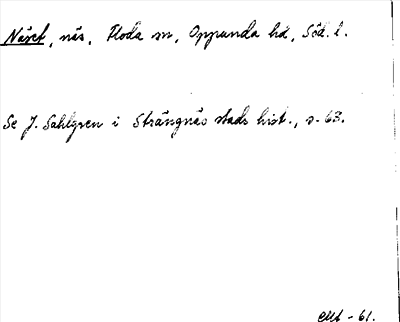 Näset, näs, Floda sn, Oppunda hd, Söd. l.
Se J. Sahlgren i Strängnäs stads hist., s. 63.
-61.